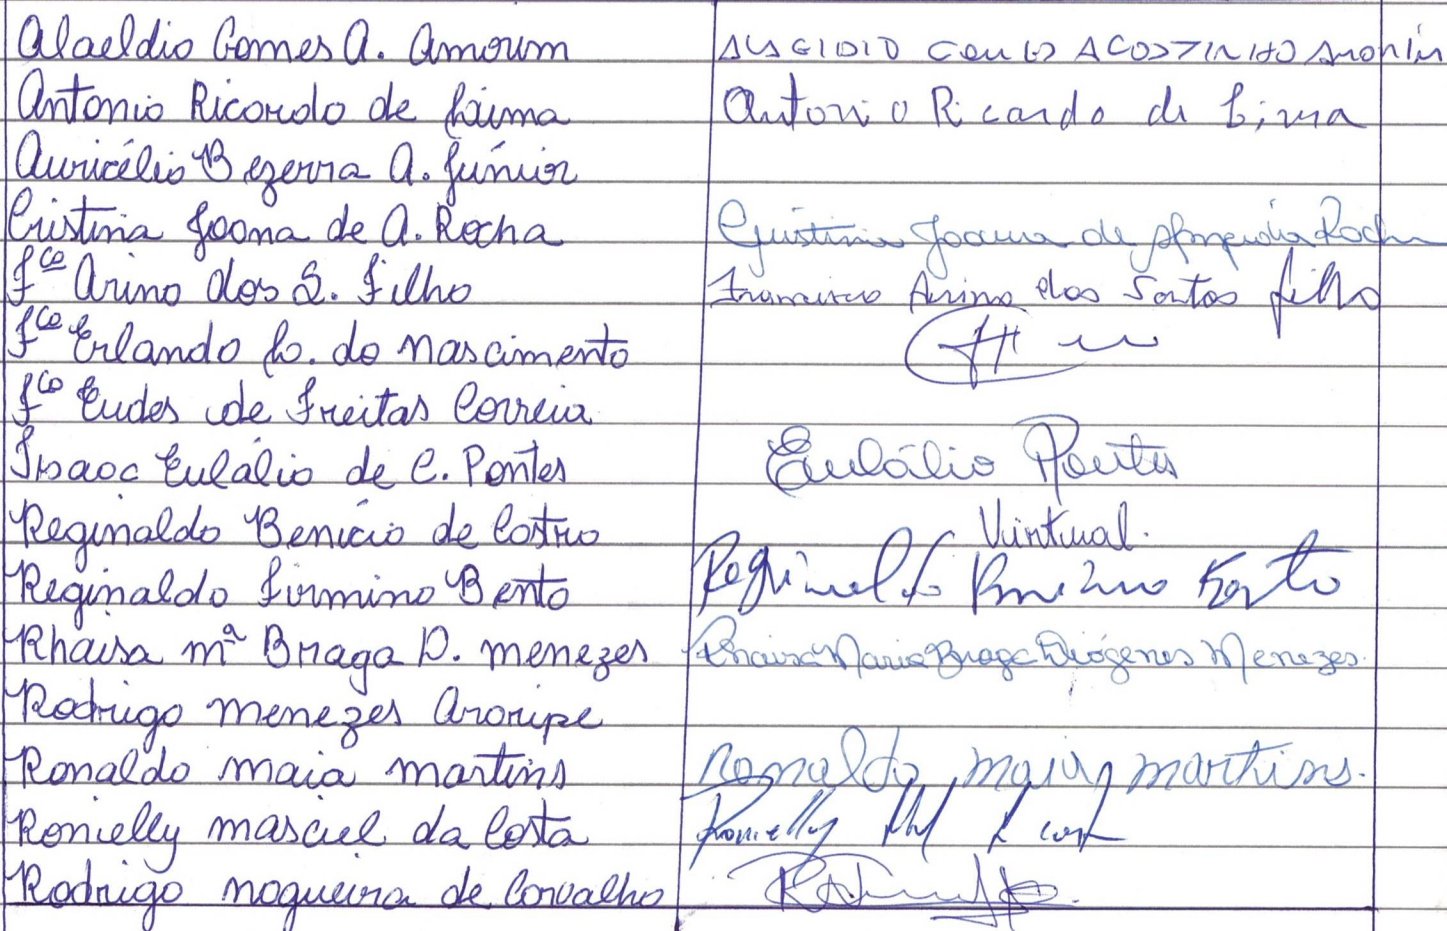 Alaeldio Gomes A. Amorim ALAELDIO GOMES AGOSTINHO AMORIM
Antonio Ricardo de Laima Antonio Ricardo de Lima
Auricélio Bezerra A. Júnior
Cristina Joana de A. Rocha Cristina Joana de Almeida Rocha
Fco Arino dos S. Filho Francisco Arino dos Santos filho
Fco Erlando Lo. do Nascimento
Fco Eudes de Freitas Correia
Isaac Eulálio de C. Pontes Eulálio Pontes
Reginaldo Benício de Castro Virtual.
Reginaldo Firmino Bento Reginaldo Firmino Bento
Rhaisa Mª Braga D. Menezes Rhaisa Maria Braga Diógenes Menezes.
Rodrigo Menezes Araripe
Ronaldo Maia Martins Ronaldo Maia martins.
Ronielly Masciel da Costa Ronielly
Rodrigo Nogueira de Carvalho